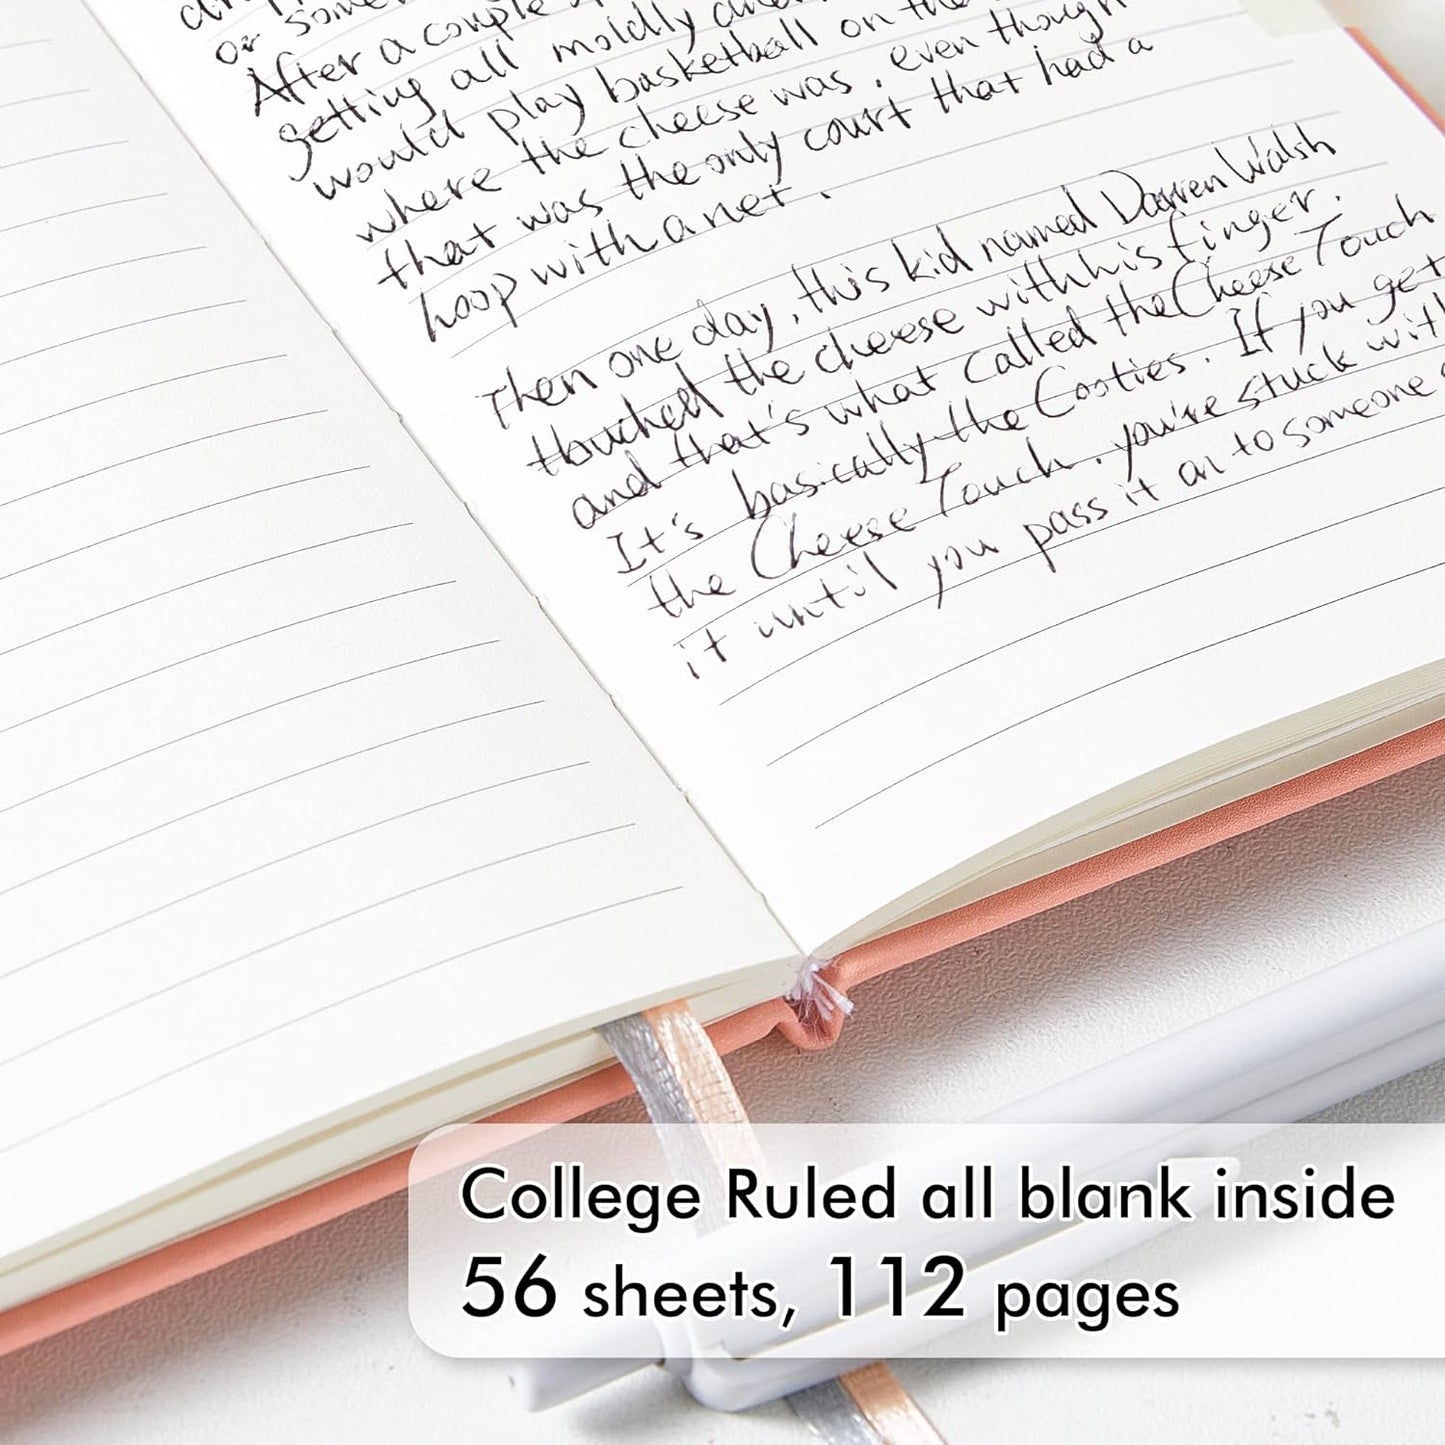 or some
After a couple
getting all moldly and
would play basketball on the
where the cheese was, even though
that was the only court that had a
hoop with a net.
Then one day, this kid named Darren Walsh
thouched the cheese with his finger.
and that's what called the Cheese Touch
It's basically the Cooties. If you get
the Cheese Touch, you're stuck with
it until you pass it on to someone
College Ruled all blank inside
56 sheets, 112 pages